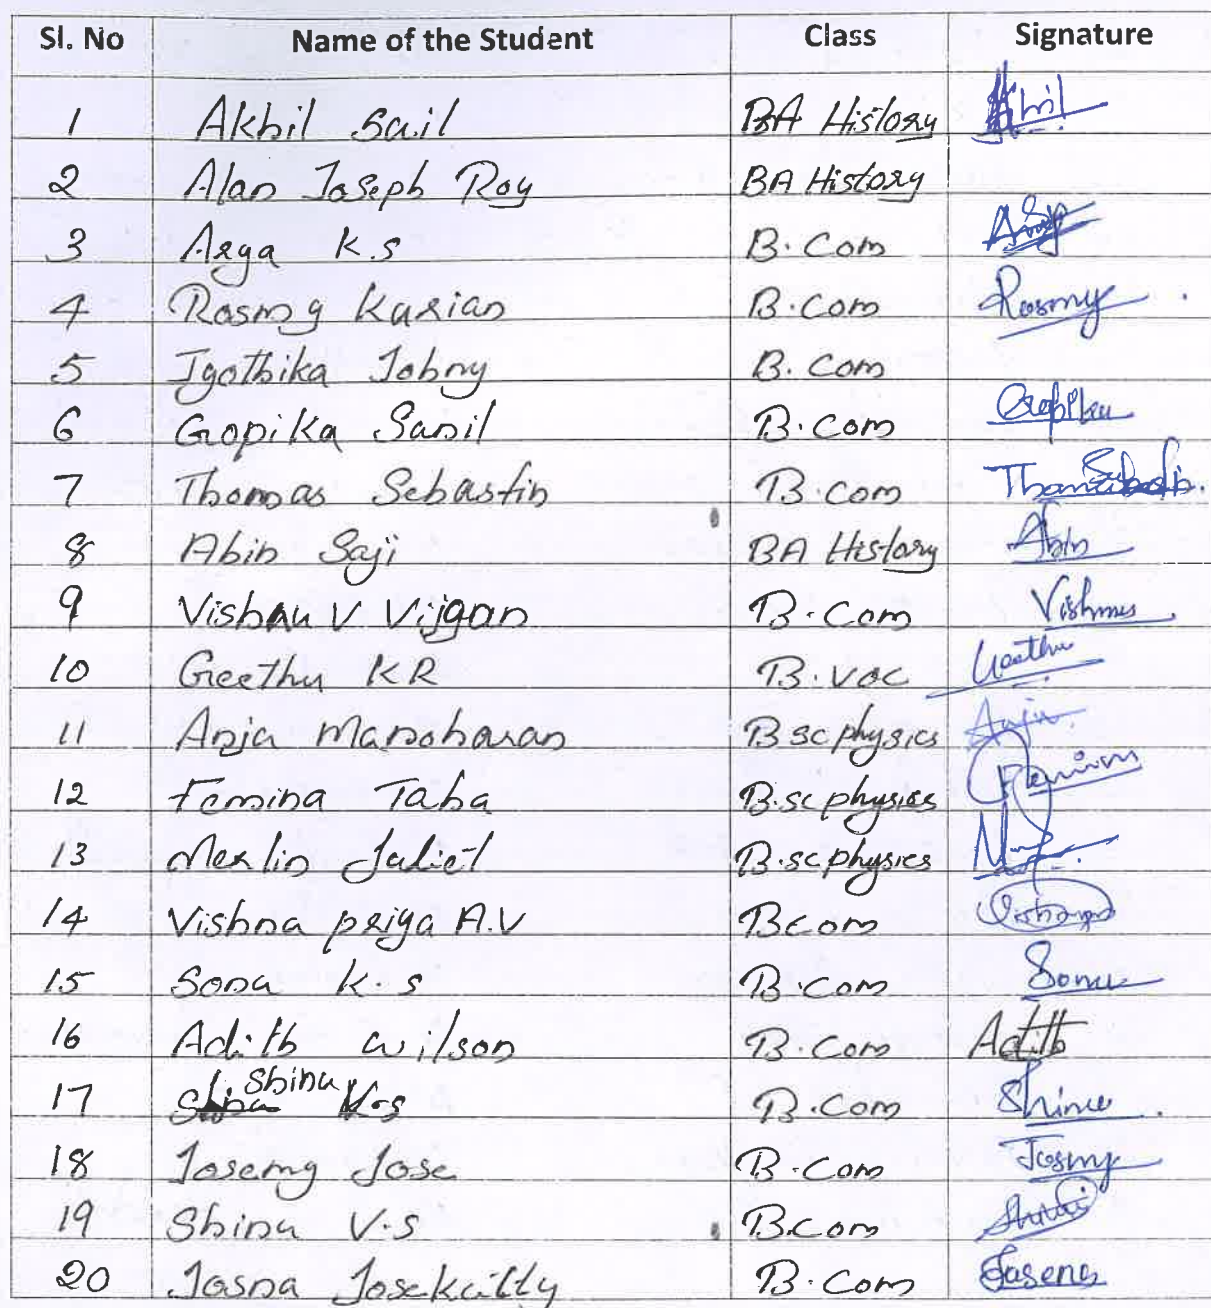 Sl. No Name of the Student Class Signature
1 Akhil Sail BA History Akhil
2 Alan Joseph Roy BA History
3 Arya K.S B.Com
4 Rosmy Karian B.Com Rosmy
5 Jyothika Johny B.Com
6 Gopika Sanil B.Com Gopika
7 Thomas Sebastin B.Com Thomas Sebastin
8 Abin Saji BA History Abin
9 Vishnu V Vijyan B.Com Vishnu
10 Geethu KR B.voc Geethu
11 Anja Manoharan B sc physics Anju
12 Femina Taba B.sc physics Femina
13 Merlin Juliet B.sc physics
14 Vishna priya A.V Bcom
15 Sona K.S B.Com Sona
16 Adith wilson B.Com Adith
17 Shinu K.S B.Com Shinu
18 Josemy Jose B.Com Josmy
19 Shinu V.S B.Com
20 Josna Josekutty B.Com